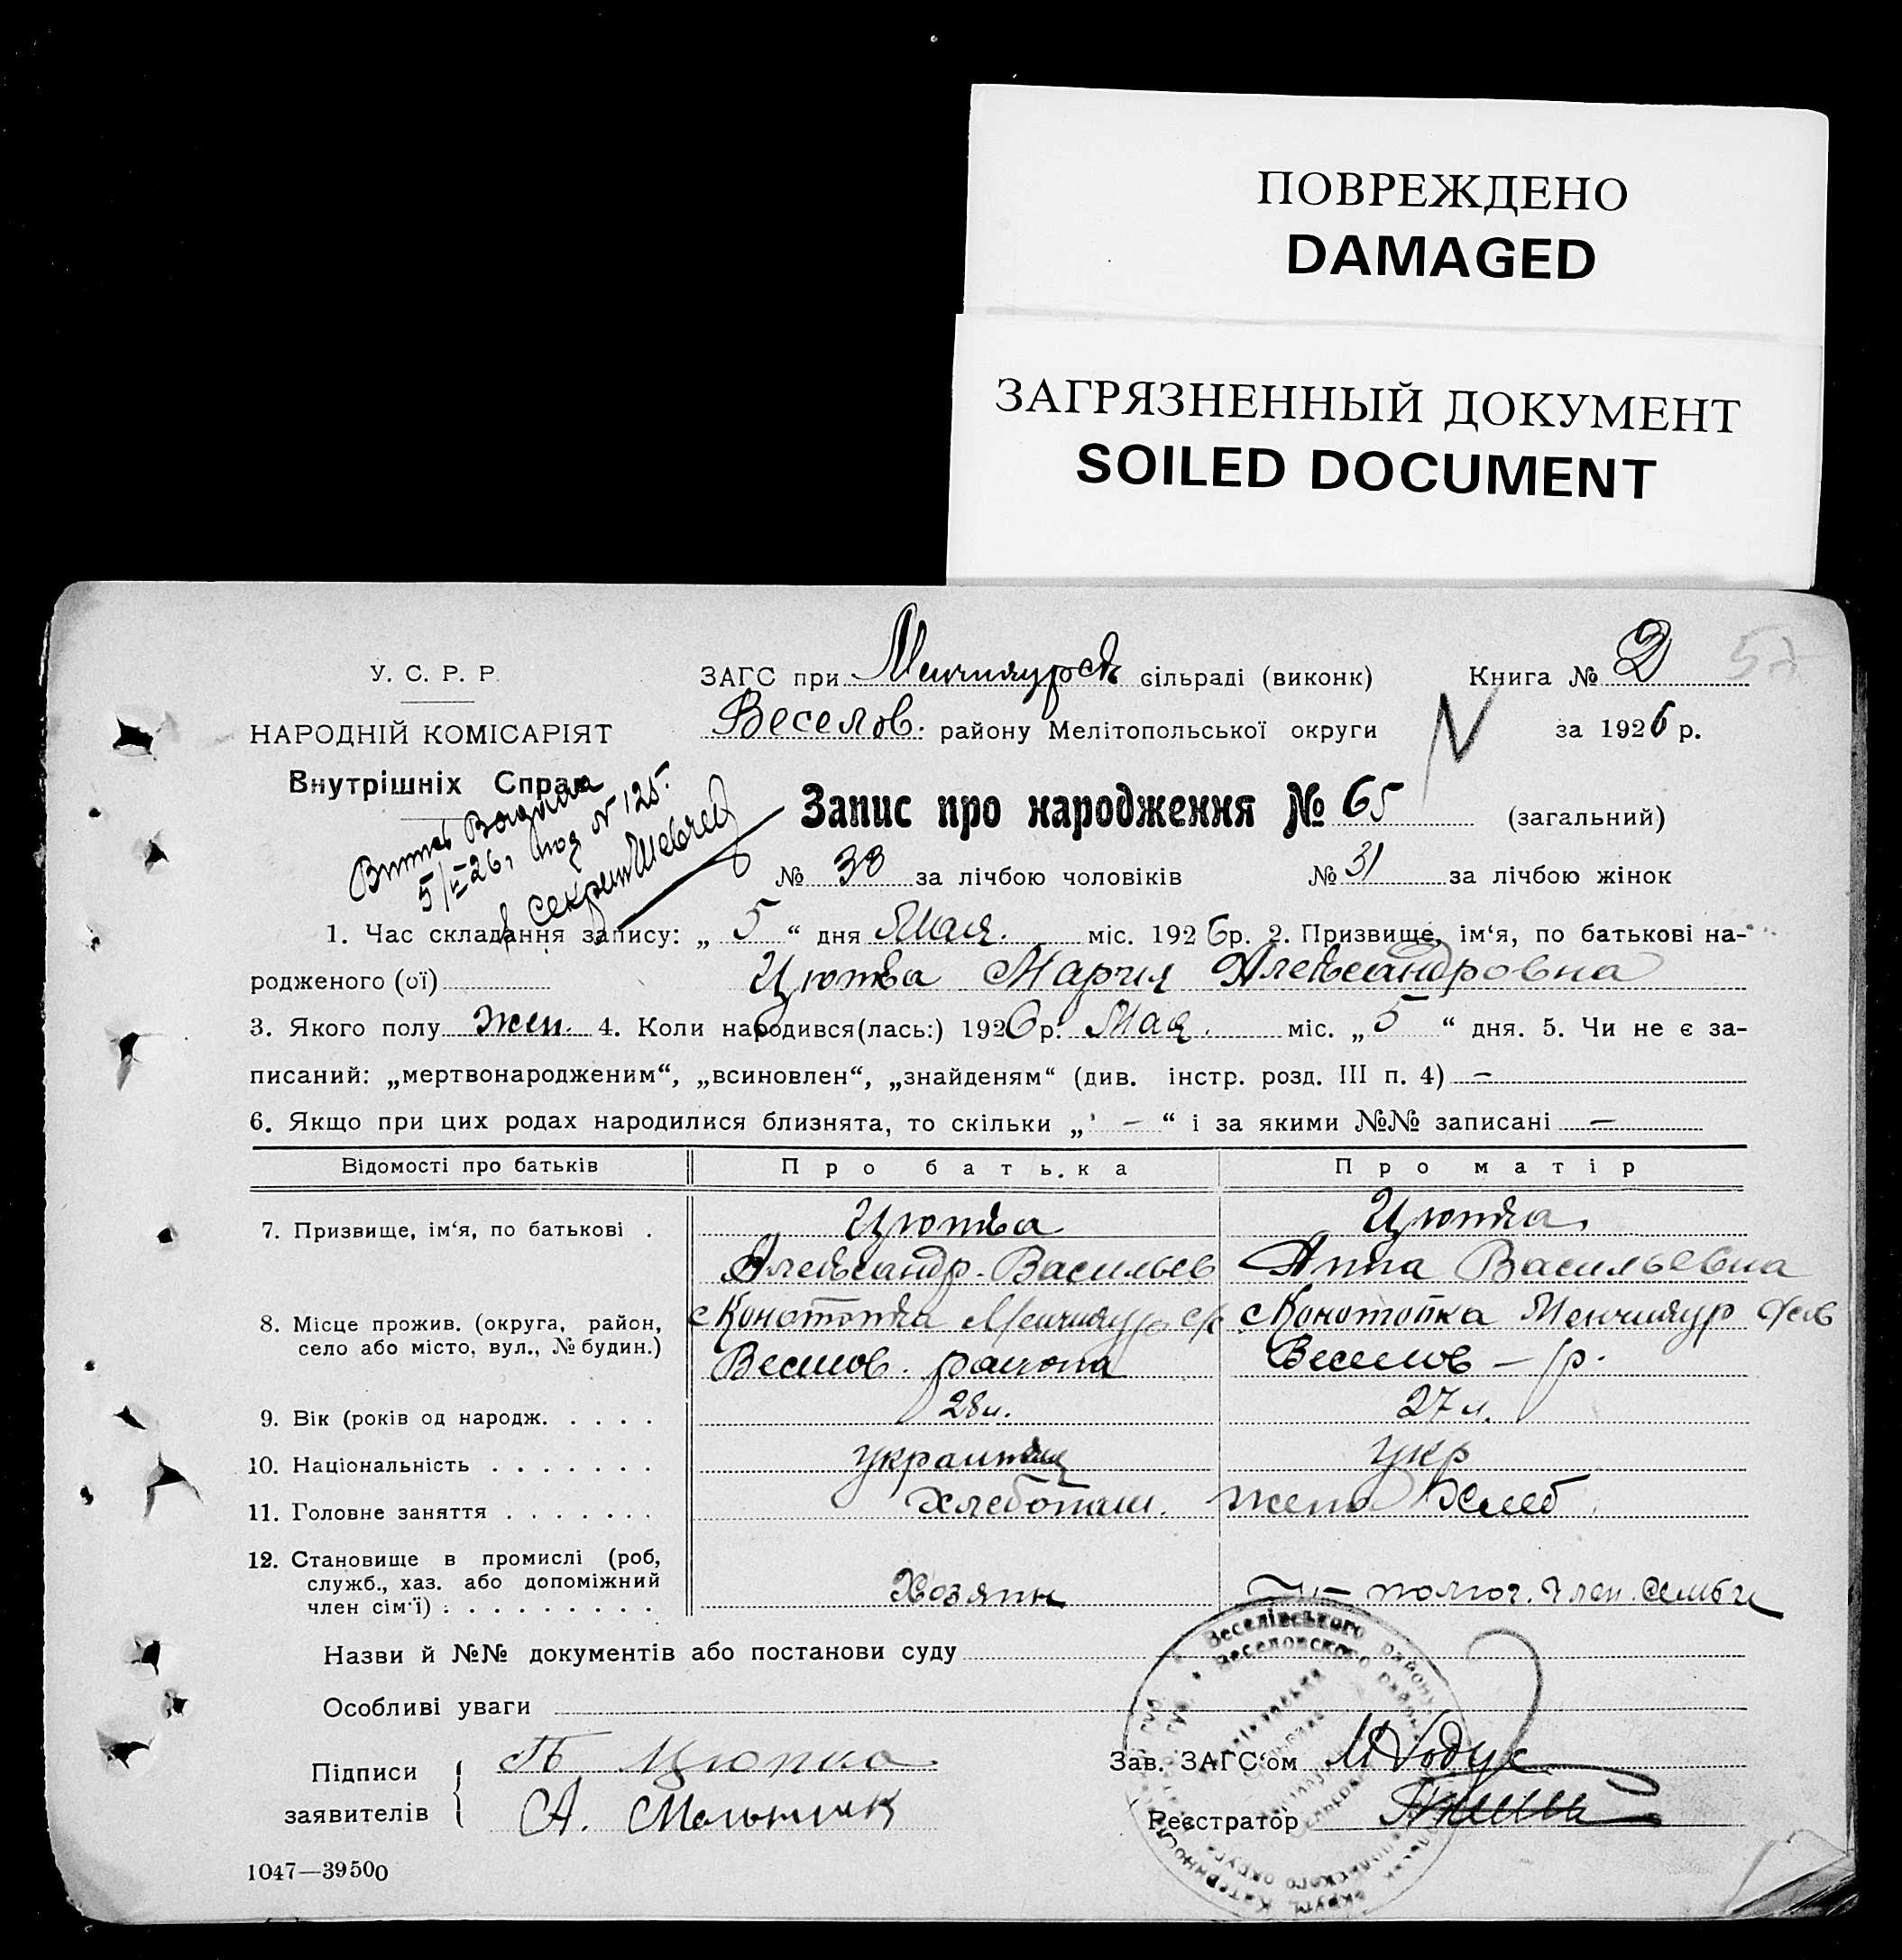 ПОВРЕЖДЕНО
DAMAGED
ЗАГРЯЗНЕННЫЙ ДОКУМЕНТ
SOILED DOCUMENT
57
У. С. Р. Р.
ЗАГС при Менчикурск сільраді (виконк)
Книга № 2
НАРОДНІЙ КОМІСАРІЯТ
Веселов. району Мелітопольської округи
за 1926 р.
Внутрішніх Справ
5/V 26, под № 125.
Запис про народження № 65 (загальний)
№ 38 за лічбою чоловіків № 31 за лічбою жінок
1. Час складання запису: „ 5 “ дня Мая. міс. 1926р. 2. Призвище, ім‘я, по батькові на-
родженого (ої) Цютка Мария Александровна
3. Якого полу жен. 4. Коли народився(лась:) 1926 р. Мая. міс. „ 5 “ дня. 5. Чи не є за-
писаний: „мертвонародженим“, „всиновлен“, „знайденям“ (див. інстр. розд. III п. 4) —
6. Якщо при цих родах народилися близнята, то скільки „ — “ і за якими №№ записані —
Відомості про батьків Про батька Про матір
7. Призвище, ім‘я, по батькові . Цютка Цютка
Александр. Васильев Анна Васильевна
8. Місце прожив. (округа, район, с Конотопка Менчикур с/с с Конотопка Менчикур
село або місто, вул., № будин.) Веселов. района Веселов – р.
9. Вік (років од народж. . . . . 28 л. 27 л.
10. Національність . . . . . . . украинец укр
11. Головне заняття . . . . . . . Хлебопаш. жена Хлеб.
12. Становище в промислі (роб,
служб., хаз. або допоміжний Хозяин помог. член. семьи
член сім‘ї) . . . . . . . . . .
Назви й №№ документів або постанови суду
Особливі уваги
Веселівського району
Веселовского района
Підписи Цютка Зав. ЗАГС‘ом
заявителів А. Мельник Реєстратор
1047—39500